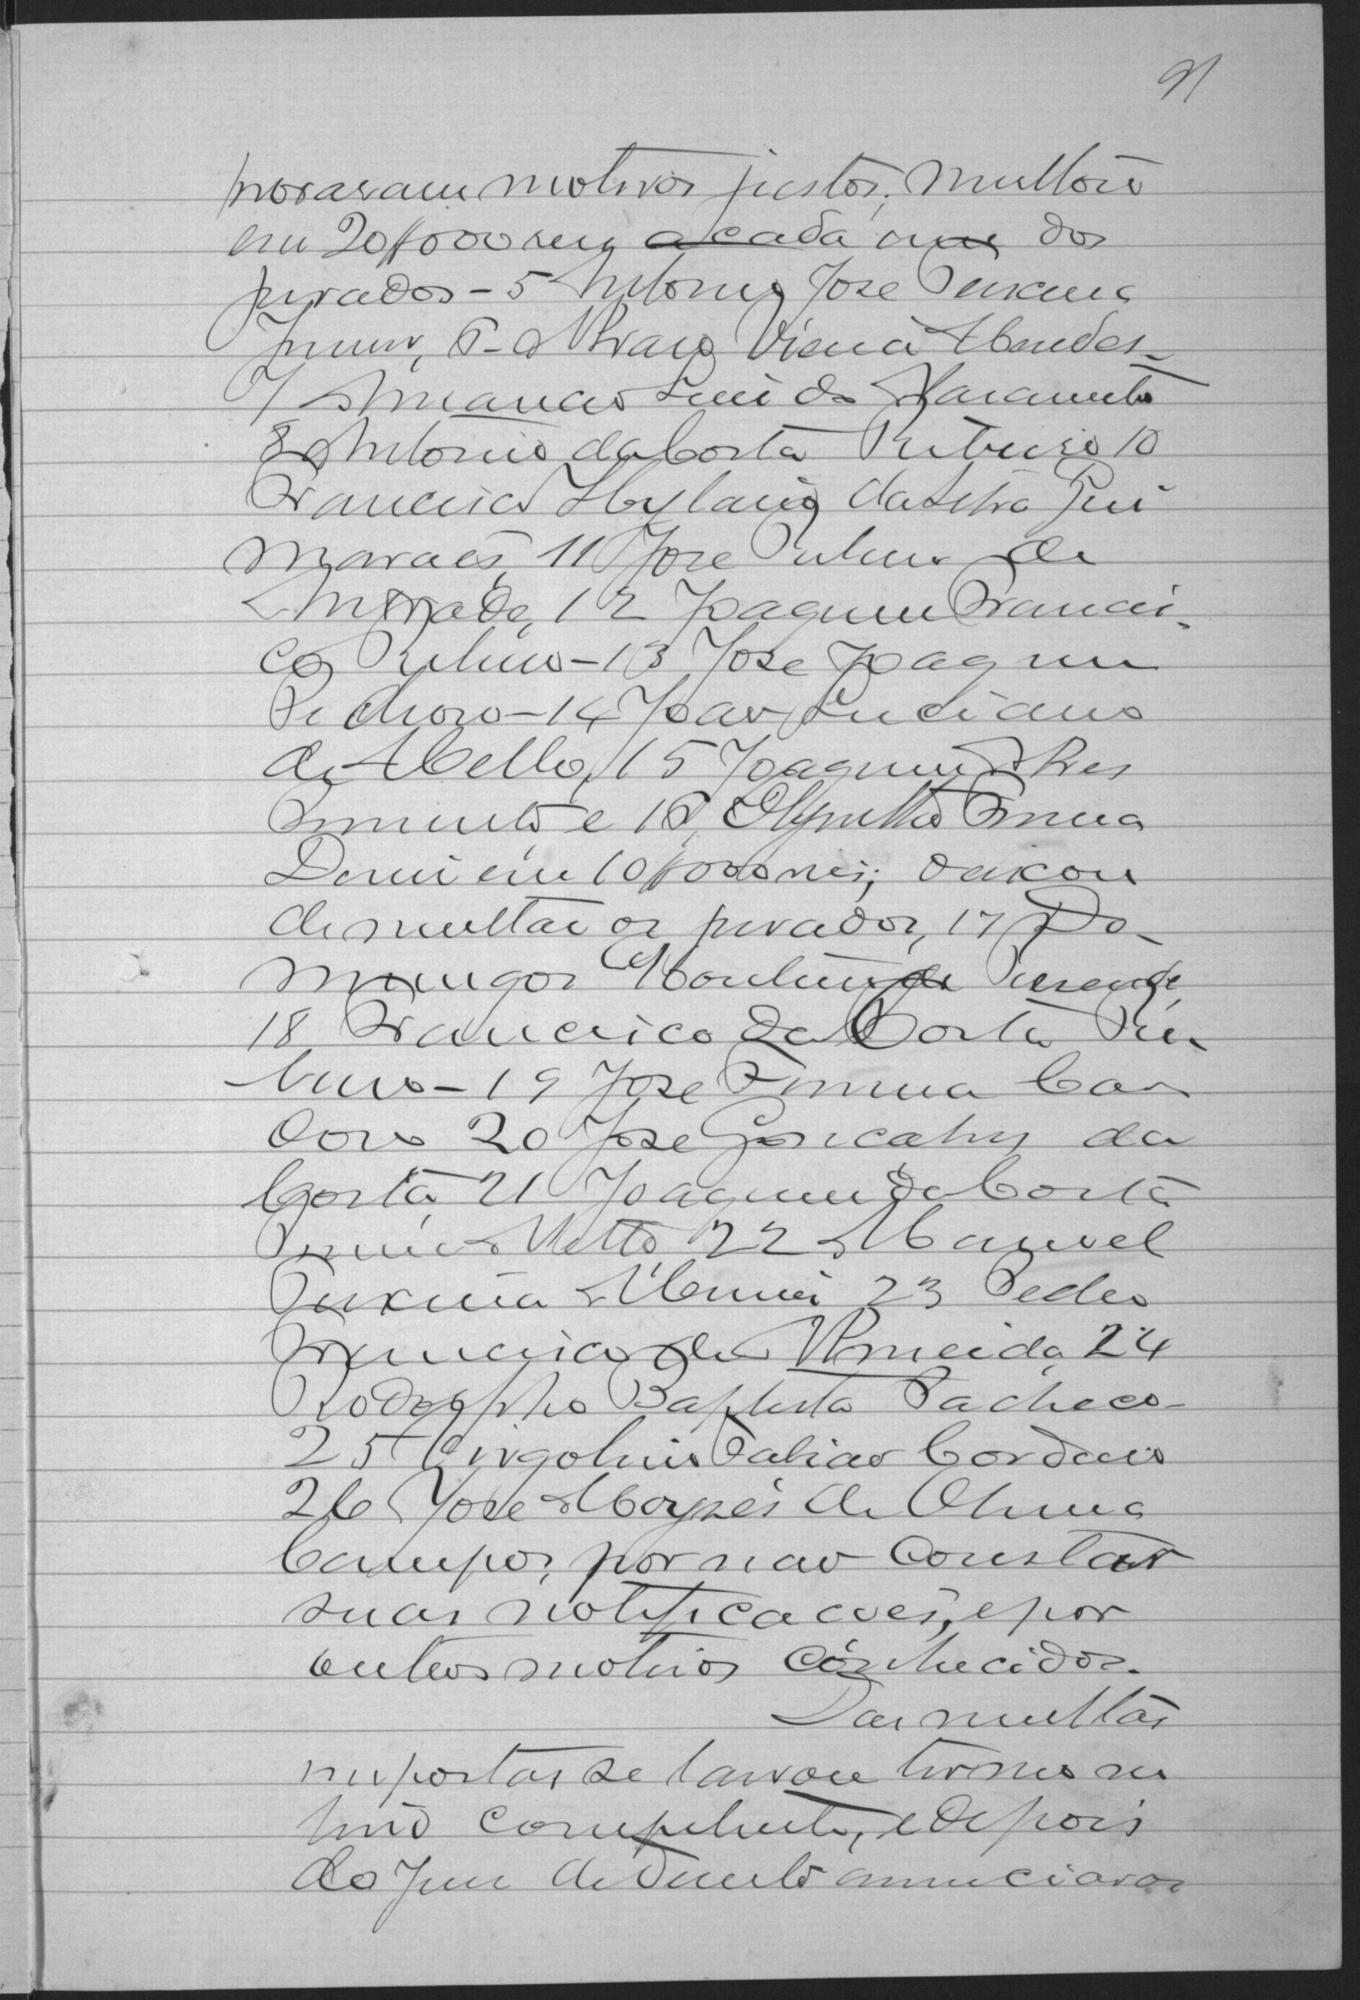 91
provaram motivos justos; multou
em 20$000 reis a cada um dos
jurados - 5 Antonio Jose Teixeira
Junior, 6 - Alvaro Viana Mendes -
7 Amancio Luis do Sacramento
8 Antonio da Costa Ribeiro 10
Francisco Hylario da Silva Gui
maraes, 11 Jose Ribeiro de
Andrade, 12 Joaquim Franci
co Ribeiro - 13 Jose Joaquim
Pedroso - 14 Joao Luciano
de Mello, 15 Joaquim Alves
Pimenta e 16 Olyntho
em 10$000 reis; deixou
de multar os jurados, 17 Do-
mingos de Rezende,
18 Francisco da Costa Ri
beiro - 19 Jose Ferreira Car
doso 20 Jose Goncalves da
Costa, 21 Joaquim da Costa
Netto, 22 Manoel
Teixeira 23 Pedro
Francisco de Almeida, 24
Rodolpho Baptista Pacheco -
25 Virgolino Fabiao Cordeiro
26 Jose Moyses de Oliveira
Campos, por nao constar
suas notificacoes, e por
outros motivos conhecidos.
Das multas
impostas se lavrou termo no
livro competente, e depois
do Juiz de Direito annunciar os